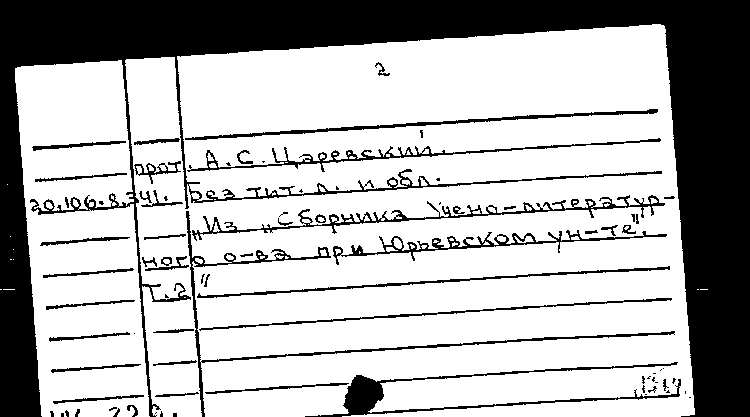 2
прот. А. С. Царевский.
20.106.8.341. Без тит. л. и обл.
„Из „Сборника Учено-литератур-
ного о-ва при Юрьевском ун-те".
Т. 2."